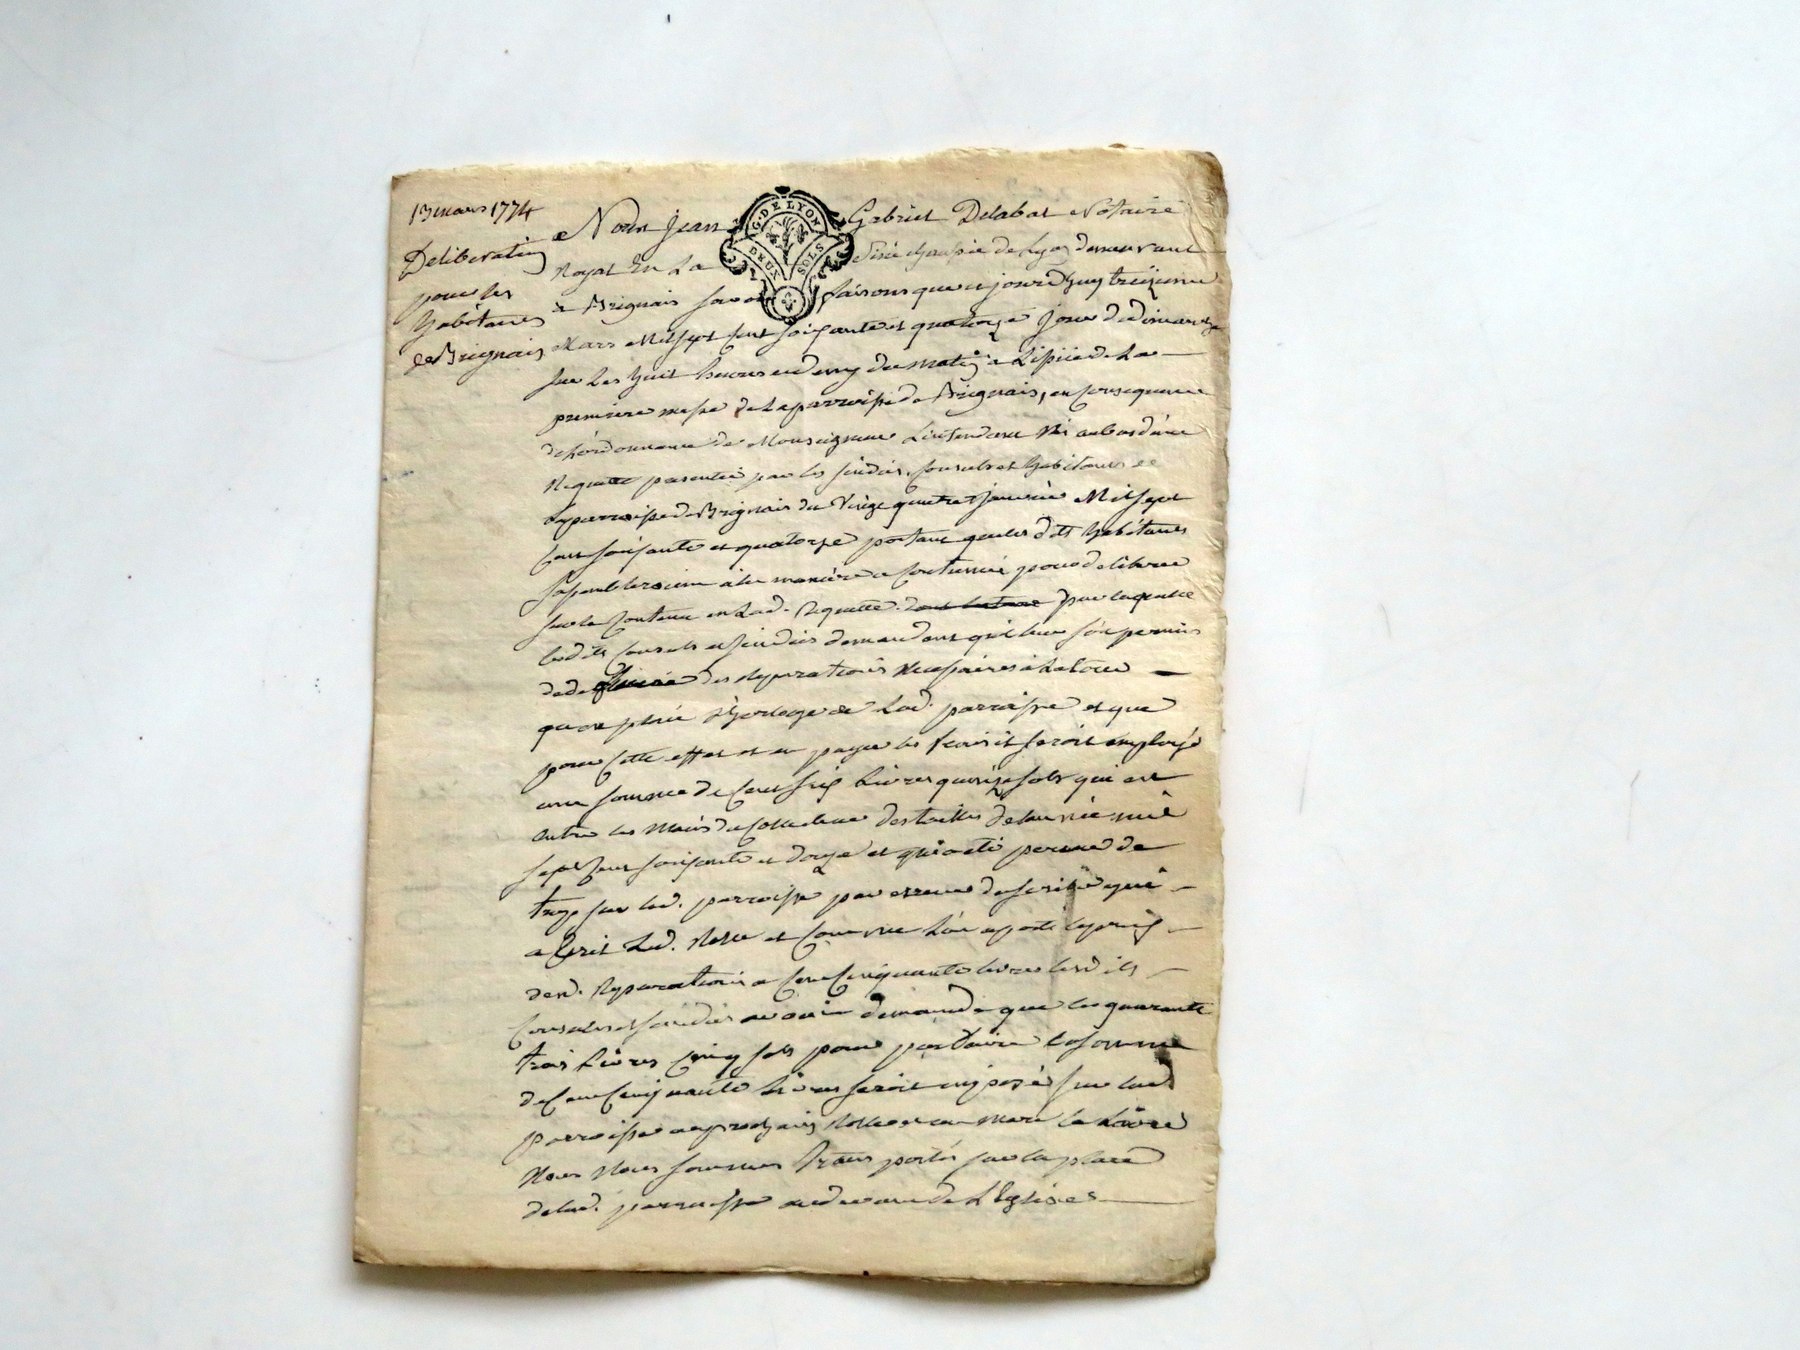 13 mars 1774
Deliberation
pour les
habitans
de Brignais
G. DE LYON
DEUX SOLS
Nous Jean Gabriel Delabat Notaire
Royal En La Sénéchaussée de Lyon demeurant
a Brignais savoir faisons que ce jourd'huy treizieme
Mars Mil sept cent soixante et quatorze jour de dimanche
sur Les huit heures du matin a L'issüe de La
premiere messe de La parroisse de Brignais, en consequence
de L'ordonnance de Monseigneur L'intendant mis au bas d'une
Requette presentée par les sindics, consuls et habitans de
La parroisse de Brignais du Vingt quatre Janvier Mil sept
cent soixante et quatorze portant que les dits habitans
s'assembleroient a la maniere accoutumée pour deliberer
sur le contenu en Lad. Requette par laquelle
les dits consuls et sindics demandent qu'il leur soit permis
de des reparations necessaires a La tour
ou est placé L'horloge de Lad. parroisse et que
pour cette effet et en payer les frais il seroit employé
une somme de cent six Livres quinze sols qui est
entre les mains du collecteur des tailles de l'année mil
sept cent soixante et douze et qui a été perçue de
trop sur lad. parroisse par erreur du scribe qui
a Ecrit Led. Rolle et comme L'on a porté le prix
desd. Reparations a cent cinquante livres lesdits
consuls et sindics auroient demandé que les quarante
trois Livres cinq sols pour parfaire la somme
de cent cinquante Livres seroit imposé sur lad.
parroisse au prochain Rolle et au marc la Livre
Nous Nous sommes transportés sur la place
de lad. parroisse au devant de L'Eglise